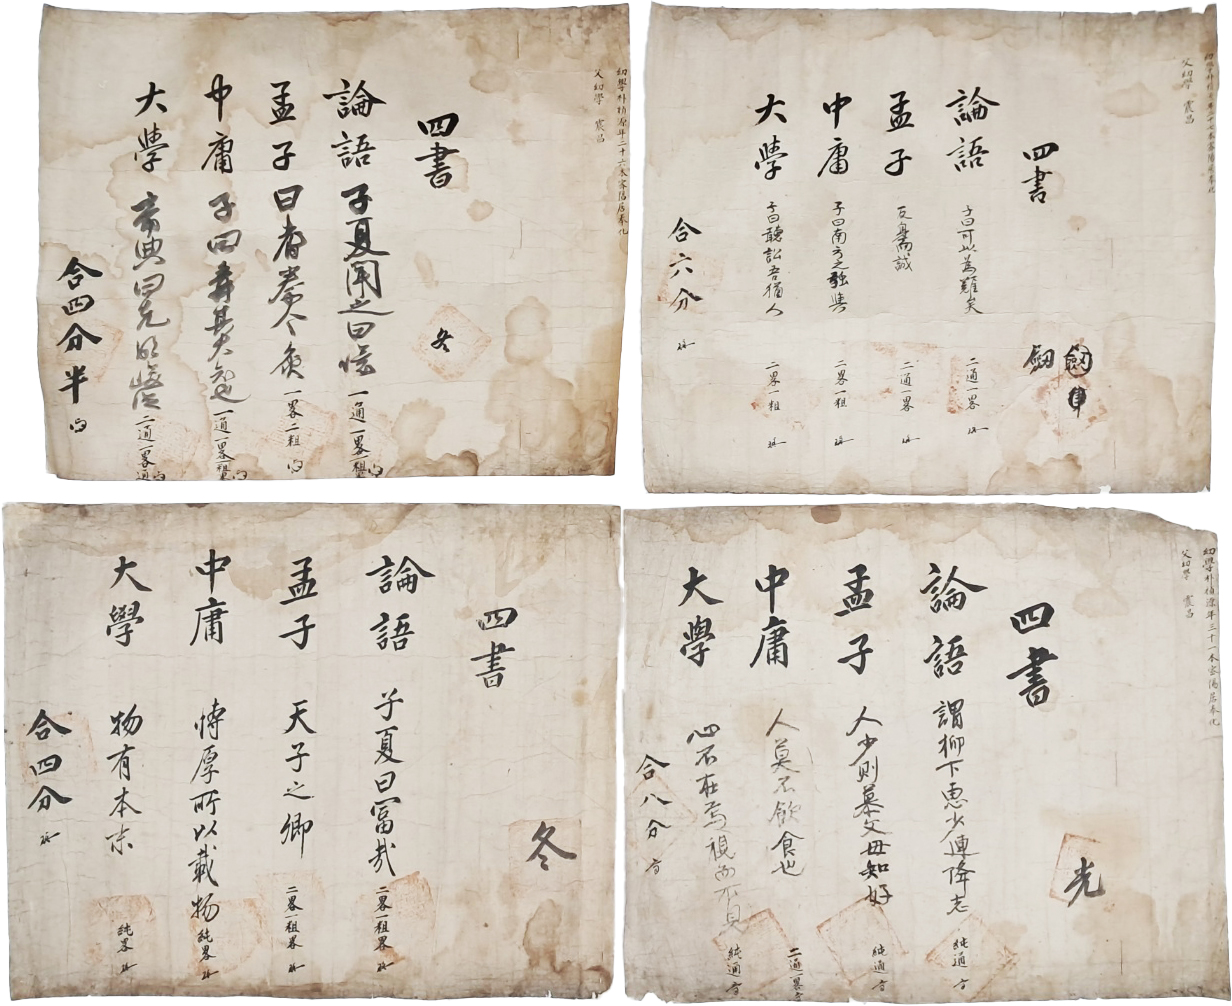 幼學朴楨源年二十六本密陽居奉化
父幼學 震昌
四書
冬
論語 子夏聞之曰噫 一通一畧一粗
孟子 曰耆秦人之炙 一畧二粗
中庸 子曰舜其大知也 一通一畧一粗
大學 帝典曰克明峻德 二通一畧
合四分半
幼學朴楨
父幼學 震昌
四書
劒
論語 子曰可以為難矣 二通一畧
孟子 反身而誠 二通一畧
中庸 子曰南方之強與 二畧一粗
大學 子曰聽訟吾猶人 二畧一粗
合六分
四書
冬
論語 子夏曰富哉 二畧一粗畧
孟子 天子之卿 二畧一粗畧
中庸 博厚所以載物 純畧
大學 物有本末 純畧
合四分
幼學朴楨源年三十一本密陽居奉化
父幼學 震昌
四書
光
論語 謂柳下惠少連降志 純通
孟子 人少則慕父母知好 純通
中庸 人莫不飲食也 二通一畧
大學 心不在焉視而不見 純通
合八分